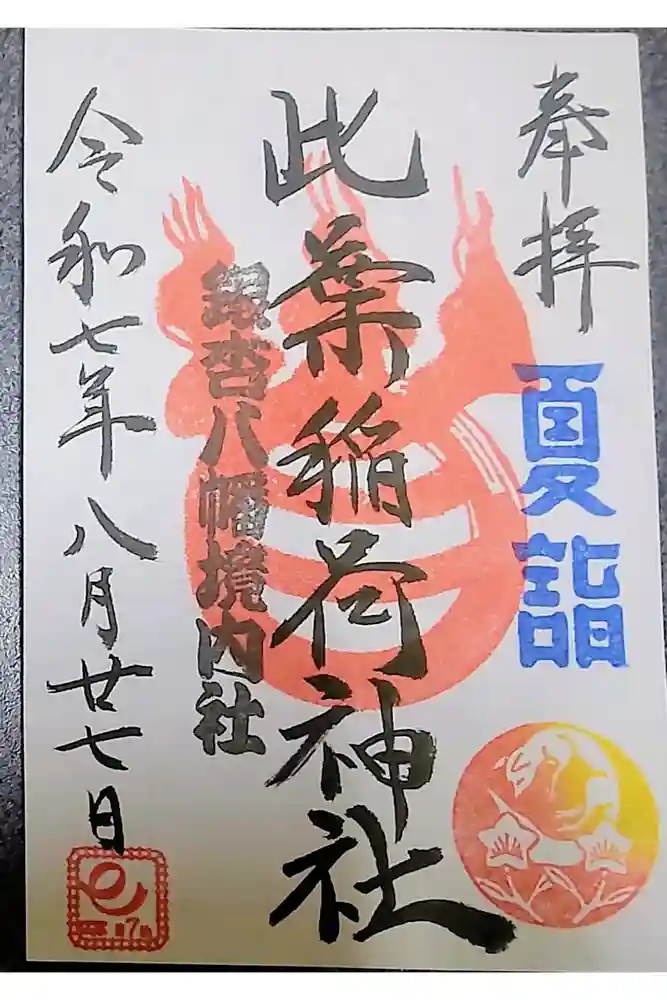 奉拝
夏詣
此葉稲荷神社
銀杏八幡境内社
令和七年八月廿七日